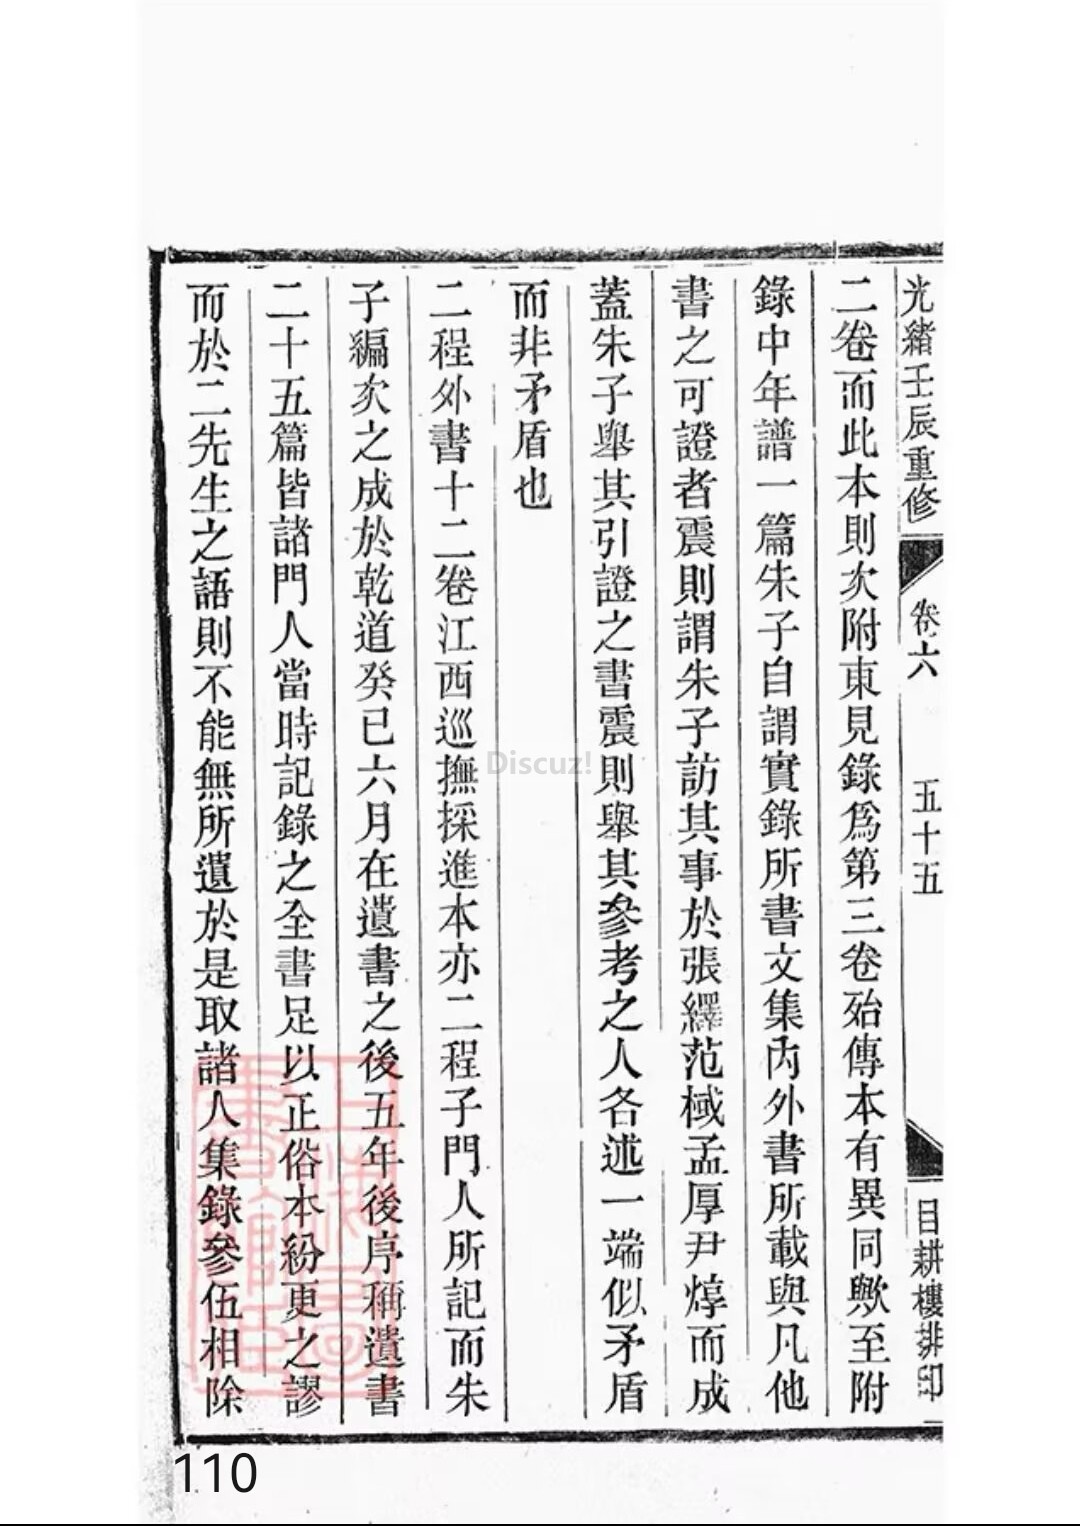 光緒壬辰重修
卷六
五十五
目耕樓排印
二卷而此本則次附東見錄爲第三卷殆傳本有異同歟至附
錄中年譜一篇朱子自謂實錄所書文集內外書所載與凡他
書之可證者震則謂朱子訪其事於張繹范棫孟厚尹焞而成
蓋朱子舉其引證之書震則舉其參考之人各述一端似矛盾
而非矛盾也
二程外書十二卷江西巡撫採進本亦二程子門人所記而朱
子編次之成於乾道癸巳六月在遺書之後五年後序稱遺書
二十五篇皆諸門人當時記錄之全書足以正俗本紛更之謬
而於二先生之語則不能無所遺於是取諸人集錄參伍相除
上海圖書館藏
Discuz!
110